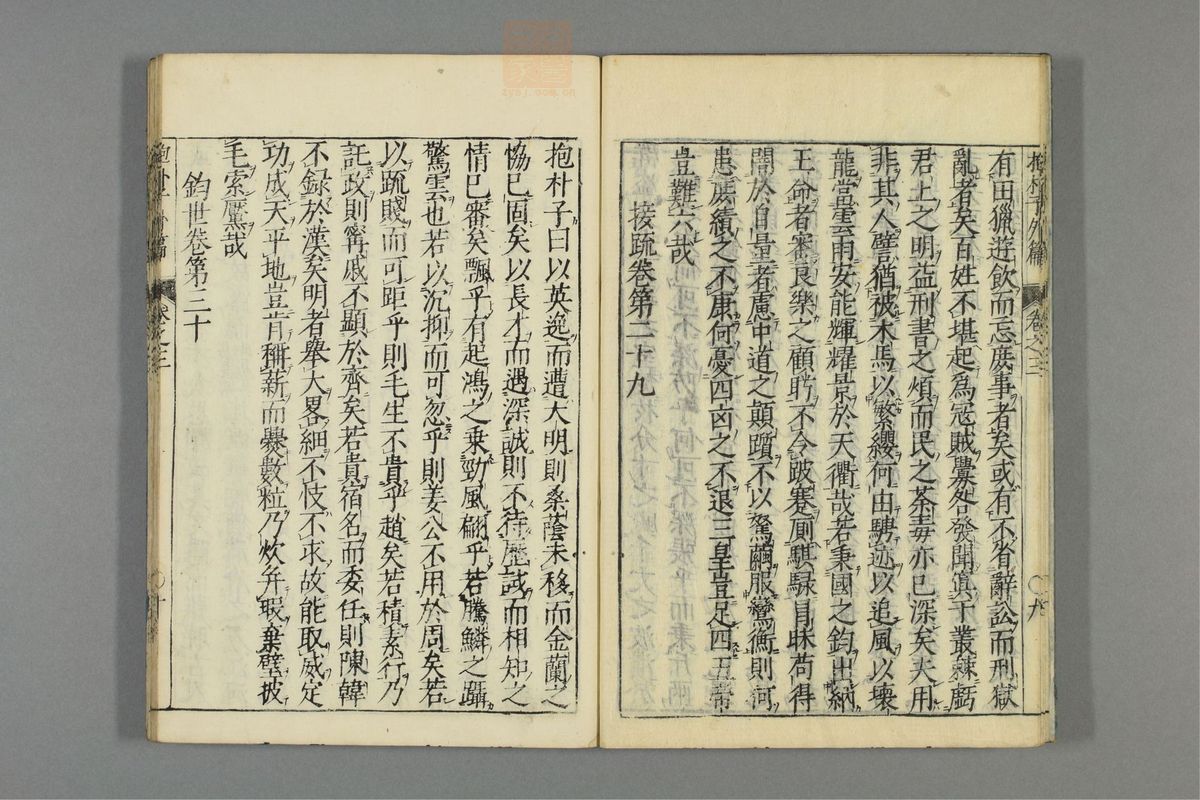 抱朴子外篇　卷之三　○九
有田獵遊飲而忘庶事者矣或有不省辭訟而刑獄
亂者矣百姓不堪起為寇賊釁咎發聞眞于叢棘虧
君上之明益刑書之煩而民之荼毒亦已深矣夫用
非其人譬猶被木馬以繁纓何由騁迹以追風以壞
龍當雲雨安能輝耀景於天衢哉若秉國之鈞出納
王命者審良樂之顧盻不令跛蹇厠騏騄冐昧苟得
闇於自量者慮中道之顛躓不以駑繭服鸞衡則何
患庶績之不康何憂四凶之不退三皇豈足四五帝
豈難六哉
接疏卷第二十九
抱朴子曰以英逸而遭大明則桑蔭未移而金蘭之
恊已固矣以長才而遇深誠則不待歷試而相知之
情已審矣飄乎有起鴻之乘勁風翩乎若騰鱗之躡
驚雲也若以沉抑而可忽乎則姜公不用於周矣若
以疏賤而可距乎則毛生不貴乎趙矣若積素行乃
託政則甯戚不顯於齊矣若貴宿名而委任則陳韓
不錄於漢矣明者舉大畧細不忮不求故能取威定
功成天平地豈肯稱薪而爨數粒乃炊并瑕棄璧披
毛索黶哉
鈞世卷第三十